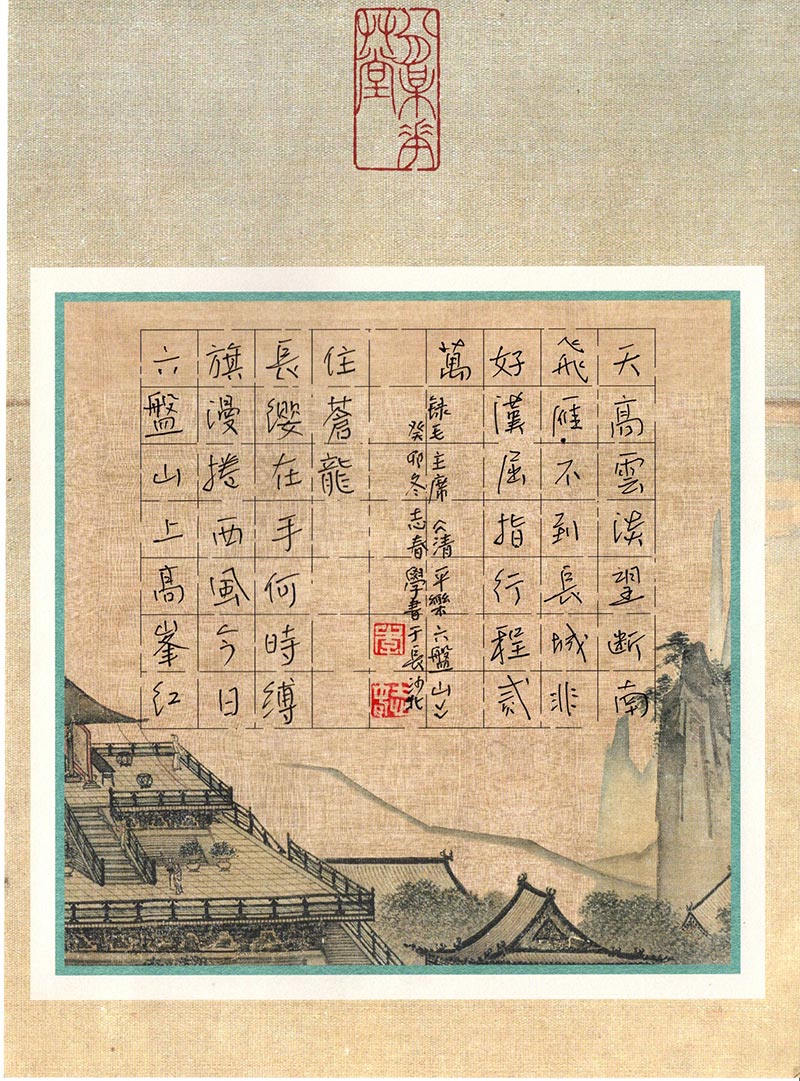 天高雲淡望断南
飛雁不到長城非
好漢屈指行程貳
萬
六盤山上高峯红
旗漫捲西風今日
長缨在手何時縛
住蒼龍
録毛主席《清平樂六盤山》
癸卯冬志春學書于長沙北